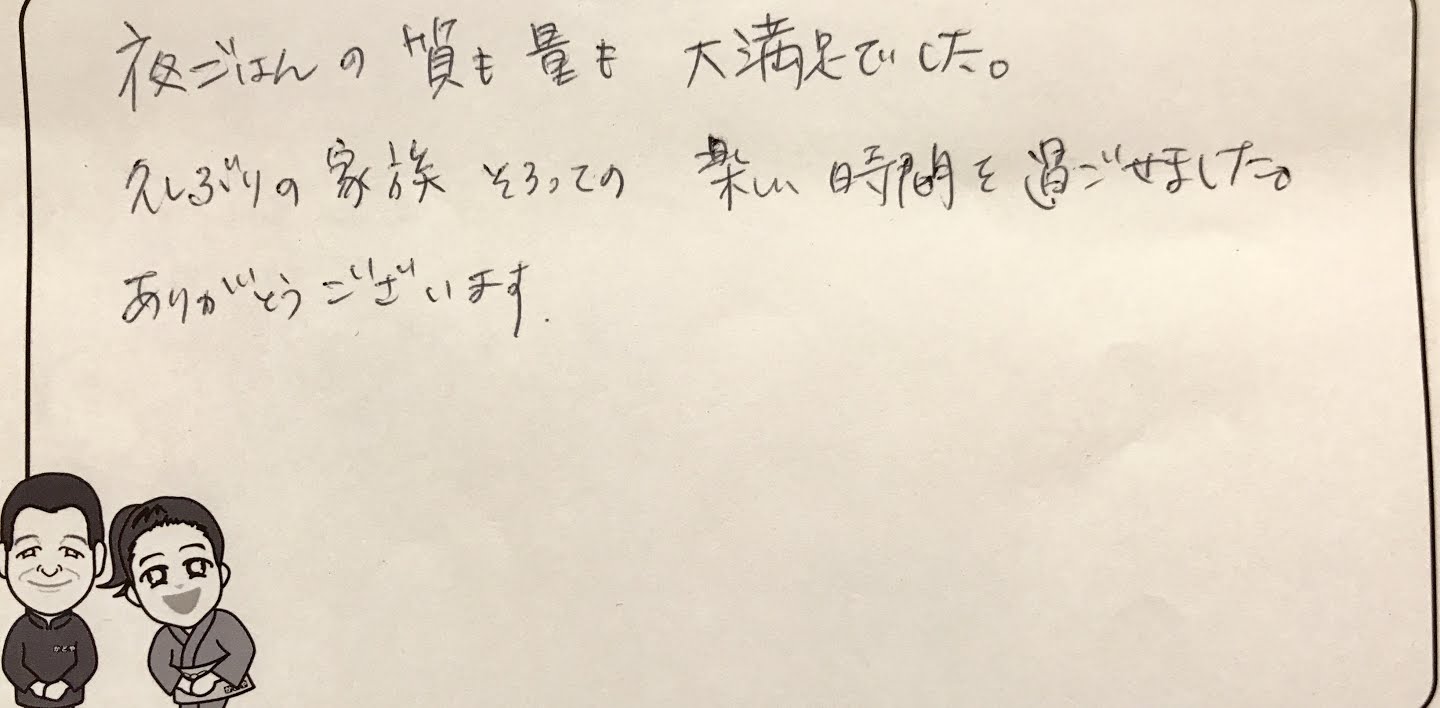 夜ごはんの質も量も 大満足でした。
久しぶりの家族そろっての 楽しい時間を過ごせました。
ありがとうございます.
かどや